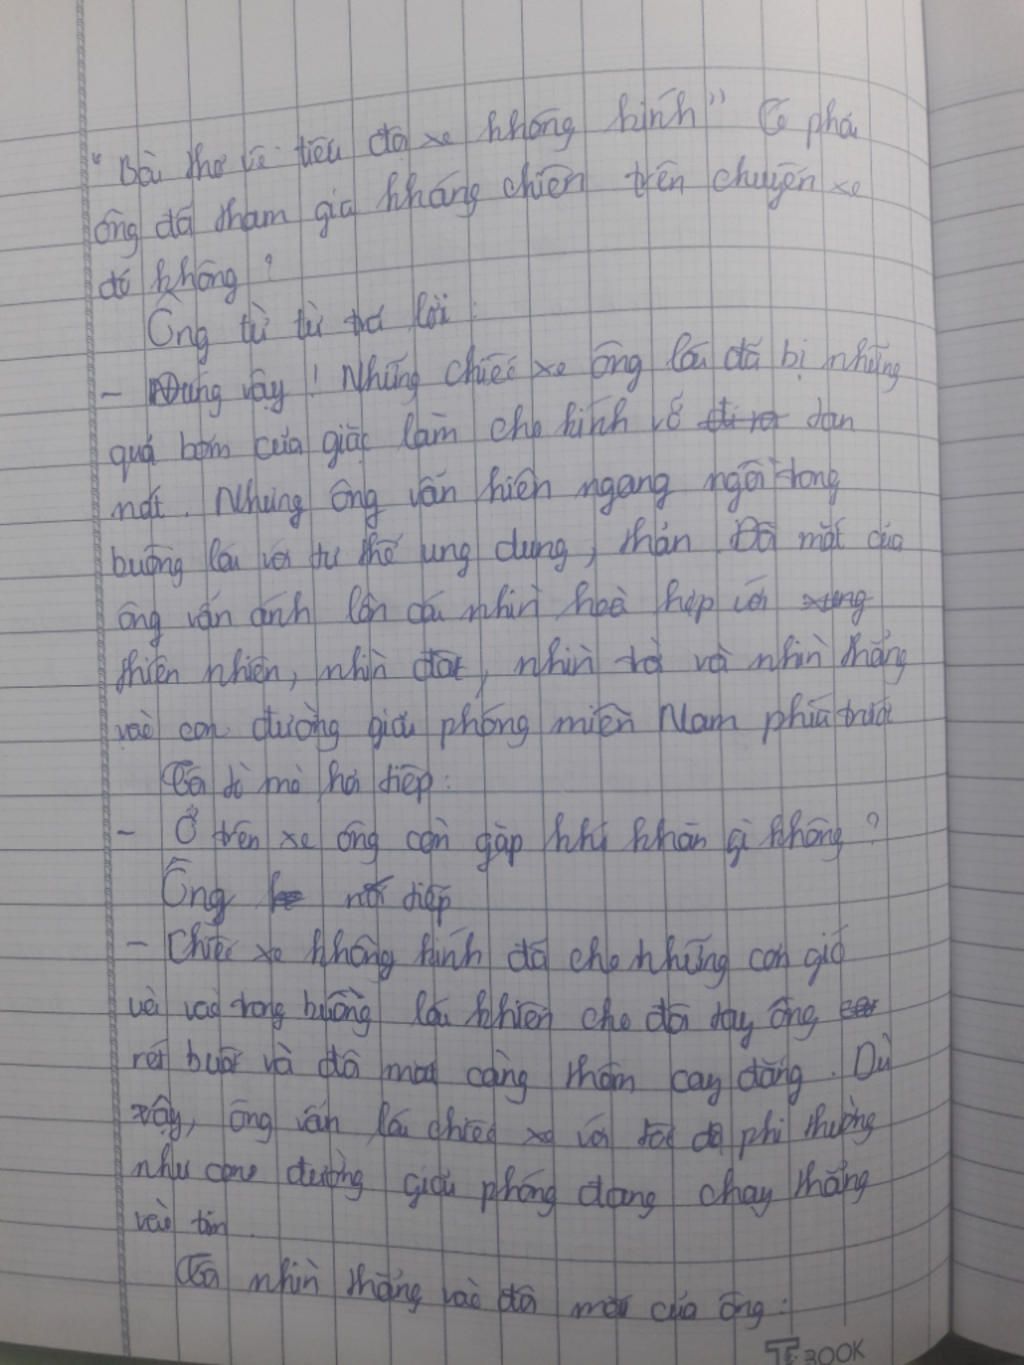 "Bài thơ về tiểu đội xe không kính" Có phải
ông đã tham gia kháng chiến trên chuyến xe
đó không?
Ông từ từ trả lời:
- Đúng vậy! Những chiếc xe ông lái đã bị những
quả bom của giặc làm cho kính vỡ dần
mất. Nhưng ông vẫn hiên ngang ngồi trong
buồng lái với tư thế ung dung, Đôi mắt của
ông vẫn ánh lên cái nhìn hoà hợp với
thiên nhiên, nhìn đất, nhìn và nhìn thẳng
vào con đường giải phóng miền Nam phía trước
Tôi tò mò hỏi tiếp:
- Ở trên xe ông còn gặp khó khăn gì không?
Ông nói tiếp
- Chiếc xe không kính đã cho những cơn gió
vào trong buồng lái khiến cho đôi tay ông
rét buốt và đôi mắt càng thêm cay đắng. Dù
vậy, ông vẫn lái chiếc xe với tốc độ phi thường
như con đường giải phóng đang chạy thẳng
vào tim.
Tôi nhìn thẳng vào đôi mắt của ông:
T BOOK